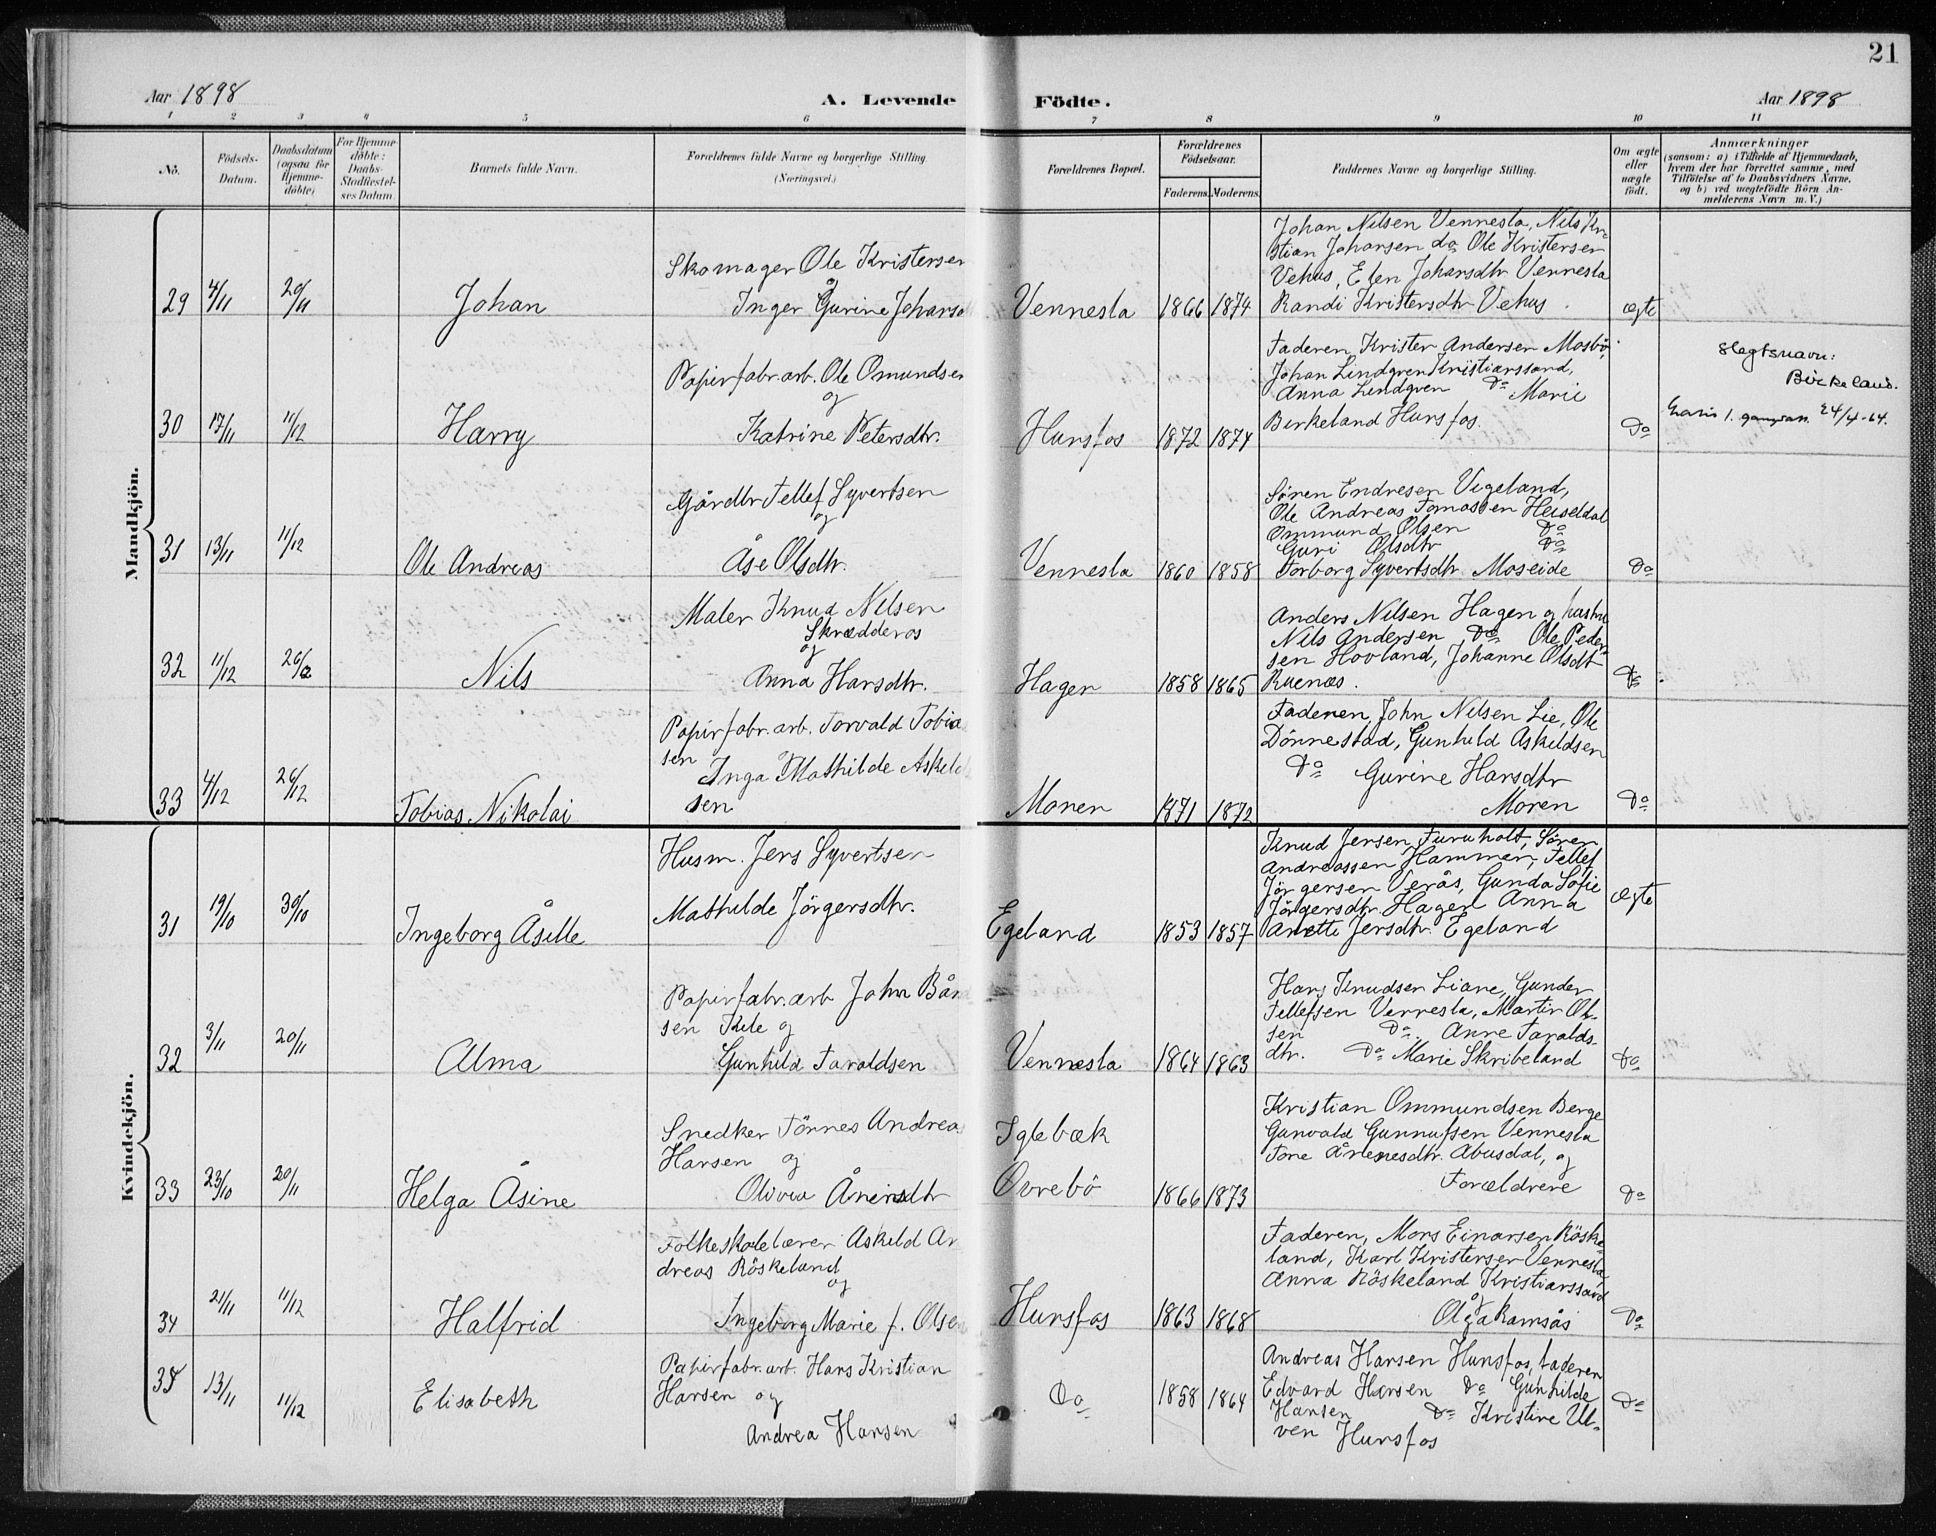 21
Aar 1898
A. Levende Födte.
Aar 1898
1 2 3 4 5 6 7 8 9 10 11
No.
Födsels-Datum.
Daabsdatum (ogsaa for Hjemme-döbte)
For Hjemme-döbte: Daabs-Stadfæstel-ses Datum
Barnets fulde Navn.
Forældrenes fulde Navne og borgerlige Stilling (Næringsvei.)
Forældrenes Bopæl.
Forældrenes Födselsaar.
Faderens Moderens
Faddernes Navne og borgerlige Stilling.
Om ægte eller uægte födt.
Anmærkninger
(saasom: a) i Tilfælde af Hjemmedaab,
hvem der har forrettet samme, med
Tilföielse af to Daabsvidners Navne,
og b) ved uægtefödte Börn An-
melderens Navn m. V.)
Mandkjön.
29 4/11 20/11 Johan
Skomager Ole Kristensen
og
Inger Gurine Johansd
Vennesla 1866 1874
Johan Nilsen Vennesla, Nils Kri-
stian Johansen do, Ole Kristensen
Vehus, Elen Johansdtr Vennesla
Randi Kristensdtr Vehus.
ægte
30 17/11 11/12 Harry
Papirfabr.arb. Ole Omundsen
og
Katrine Petersdtr.
Hunsfos 1872 1874
Faderen, Krister Andersen Mosbö,
Johan Lindgren Kristianssand,
Anna Lindgren Do Marie
Birkeland Hunsfos.
Do
Slegtsnavn:
Birkeland.
24/4-64.
31 13/11 11/12 Ole Andreas
Gårdbr Tellef Syvertsen
og
Åse Olsdtr.
Vennesla 1860 1858
Sören Endresen Vigeland,
Ole Andreas Tomassen Heiseldal
Ommund Olsen Do
Guri Olsdtr Do
Torborg Syvertsdtr Moseide
Do
32 11/12 26/12 Nils
Maler Knud Nilsen
Skrædderås
og
Anna Hansdtr.
Hagen 1858 1865
Anders Nilsen Hagen og hustru
Nils Andersen Do Ole Peder-
sen Hovland, Johanne Olsdt
Ruenæs.
Do
33 4/12 26/12 Tobias Nikolai
Papirfabr.arb. Torvald Tobia
sen
Inga Mathilde Askeld
sen
Monen 1871 1872
Faderen, John Nilsen Lie, Ole
Dönnestad, Gunhild Askildsen
Do Gurine Hansdtr
Moren
Do
Kvindekjön.
31 19/10 30/10 Ingeborg Åselle
Husm. Jens Syvertsen
Mathilde Jörgensdtr.
Egeland 1853 1857
Knud Jensen Furuholt, Sören
Andreassen Hammer, Tellef
Jörgensen Verås, Gunda Sofie
Jörgensdtr. Hagen Anna
Anette Jensdtr. Egeland
ægte
32 3/11 20/11 Alma
Papirfabr.arb John Bård
sen Kile og
Gunhild Taraldsen
Vennesla 1864 1863
Hans Knudsen Liane, Gunder
Tellefsen Vennesla, Martin Ol-
sen Do. Anne Taralds-
dtr. Do Marie Skribeland
Do
33 23/10 20/11 Helga Åsine
Snedker Törnes Andreas
Hansen og
Olivia Ånensdtr
Iglebæk
Övrebö
1866 1873
Kristian Ommundsen Berge
Gunvald Gunnufsen Vennesla
Tone Ånenesdtr. Abusdal, og
Forældrene
Do
34 21/11 11/12 Halfrid
Folkeskolelærer Askild An
dreas Röskeland
og
Ingeborg Marie f. Olsen
Hunsfos 1863 1868
Faderen, Mons Einarsen Röske-
land, Karl Kristensen Vennesla,
Anna Röskeland Kristianssand
og
Olga Ramsås
Do
35 13/11 11/12 Elisabeth
Papirfabr.arb. Hans Kristian
Hansen og
Andrea Hansen
Do 1858 1864
Andreas Hansen Hunsfos, faderen
Edvard Hansen Do Gunhilde
Hansen Do Kristine Ul-
ven Hunsfos
Do